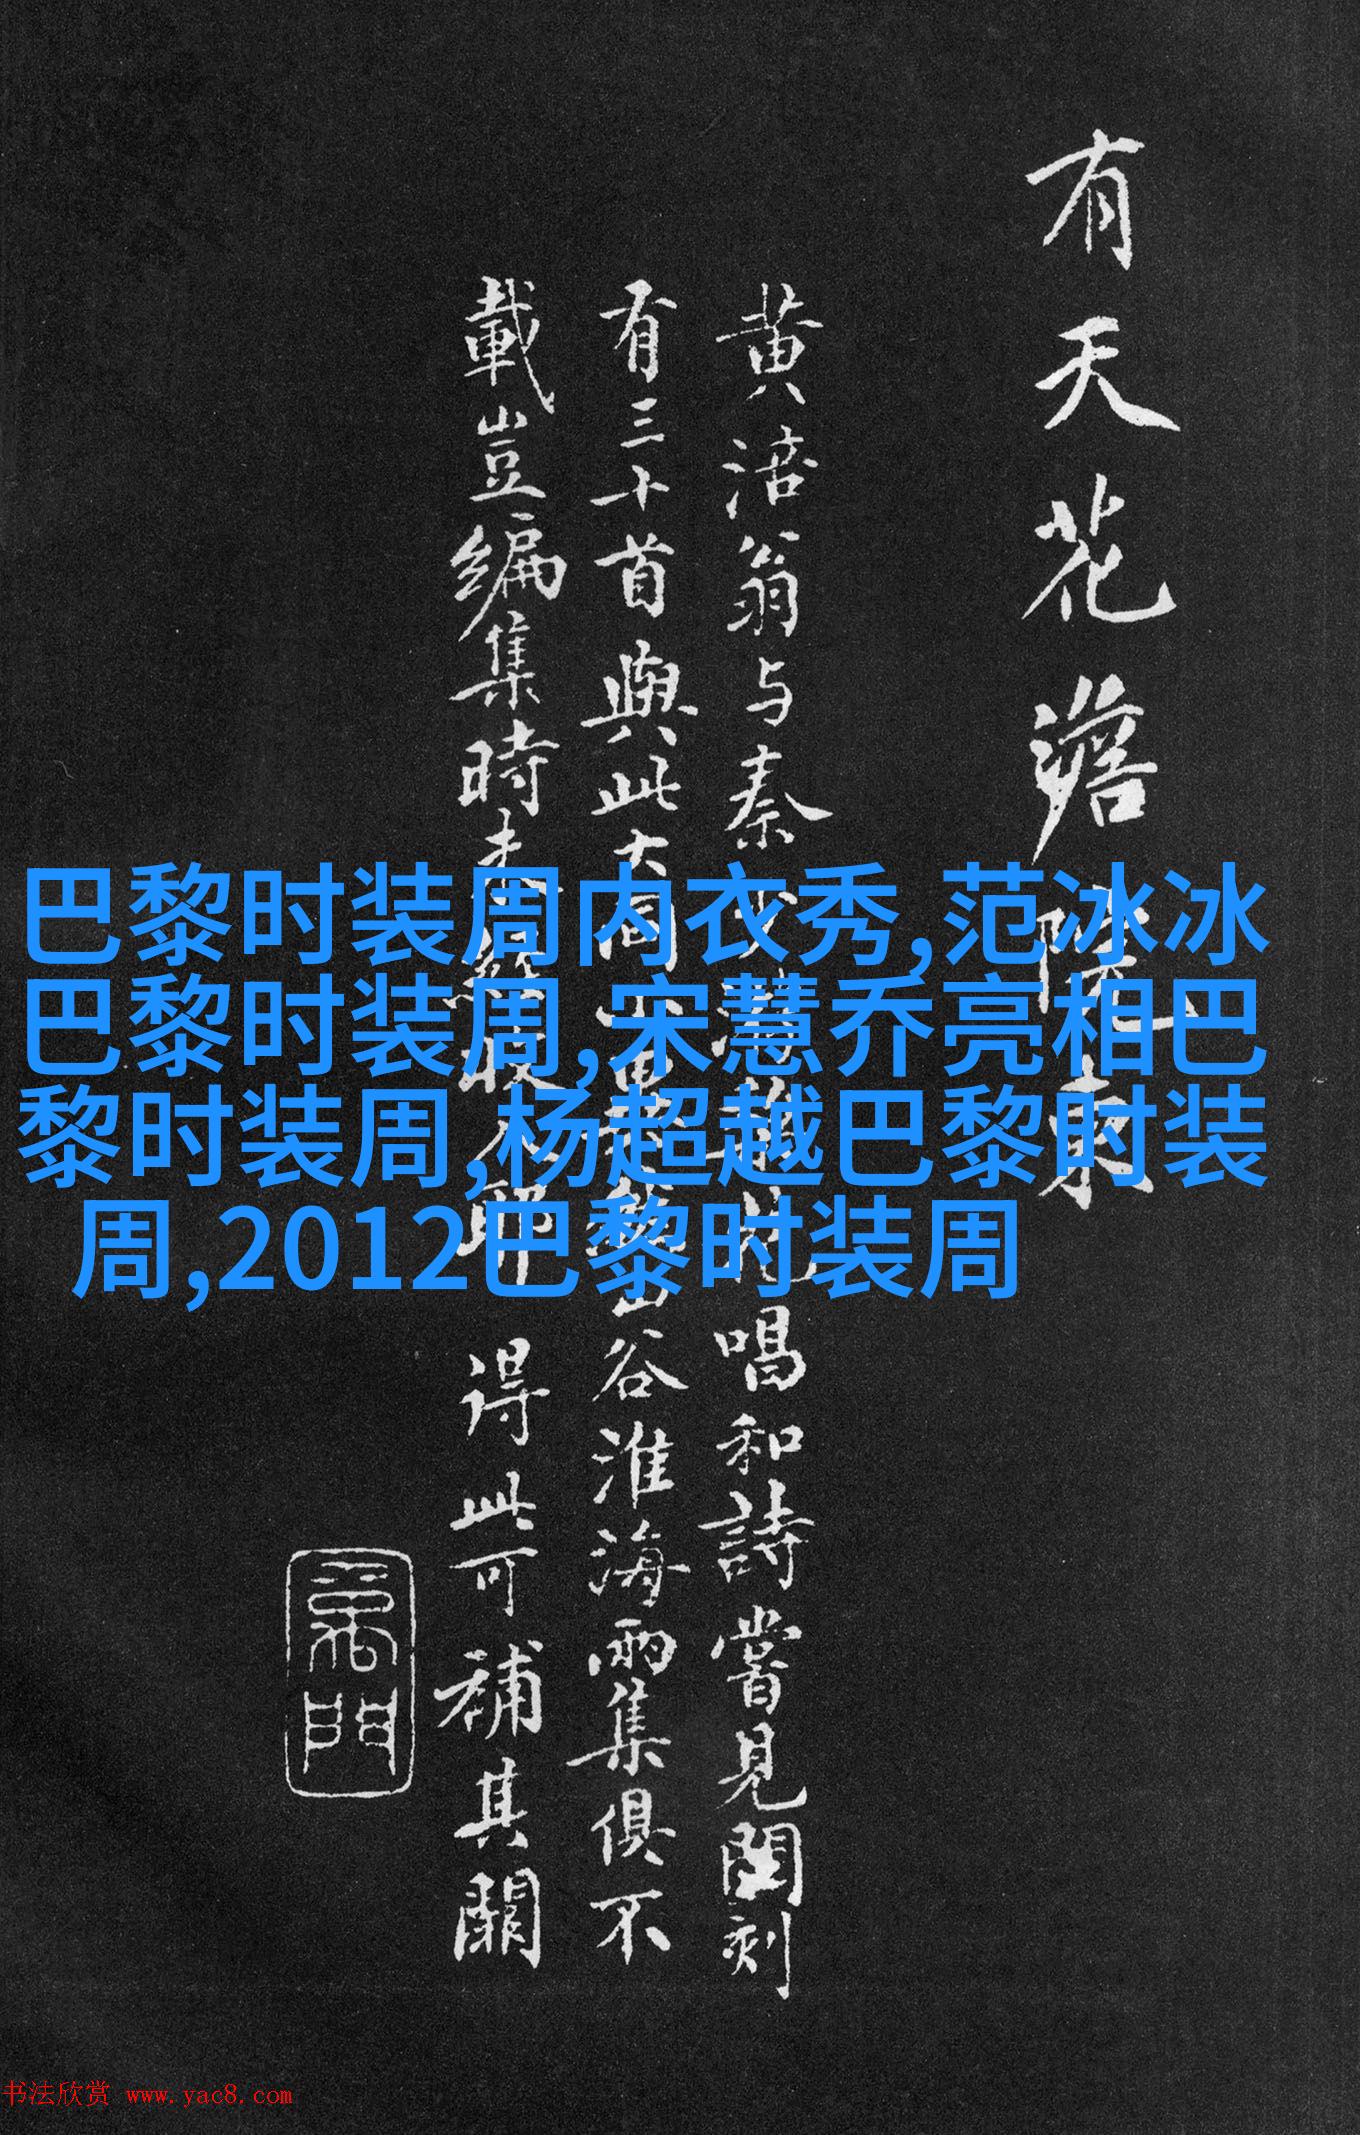 有天花澹晚東
黄涪翁与秦少游
唱和詩嘗見閣刻
有三十首與此大同小異
山谷淮海兩集俱不
載豈編集時未經收入耶
得此可補其闕
巴黎时装周内衣秀,范冰冰
巴黎时装周,宋慧乔亮相巴
黎时装周,杨超越巴黎时装
周,2012巴黎时装周
書法欣赏 www.yac8.com